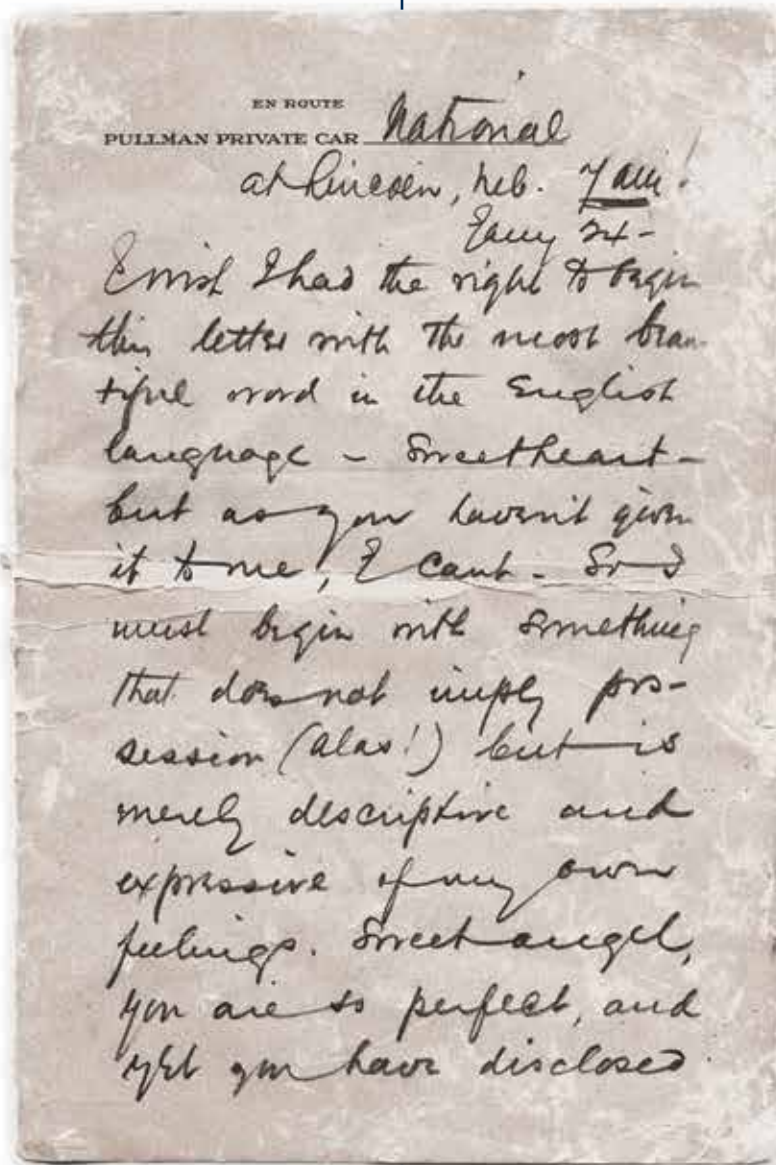 EN ROUTE
PULLMAN PRIVATE CAR National
at Lincoln, Neb. 7 am!
Jany 24-
I wish I had the right to begin
this letter with the most beau-
tiful word in the English
language - Sweetheart -
but as you haven't given
it to me, I cant - So I
must begin with something
that does not imply pos-
session (alas!) but is
merely descriptive and
expressive of my own
feelings. Sweet angel,
you are so perfect, and
yet you have disclosed